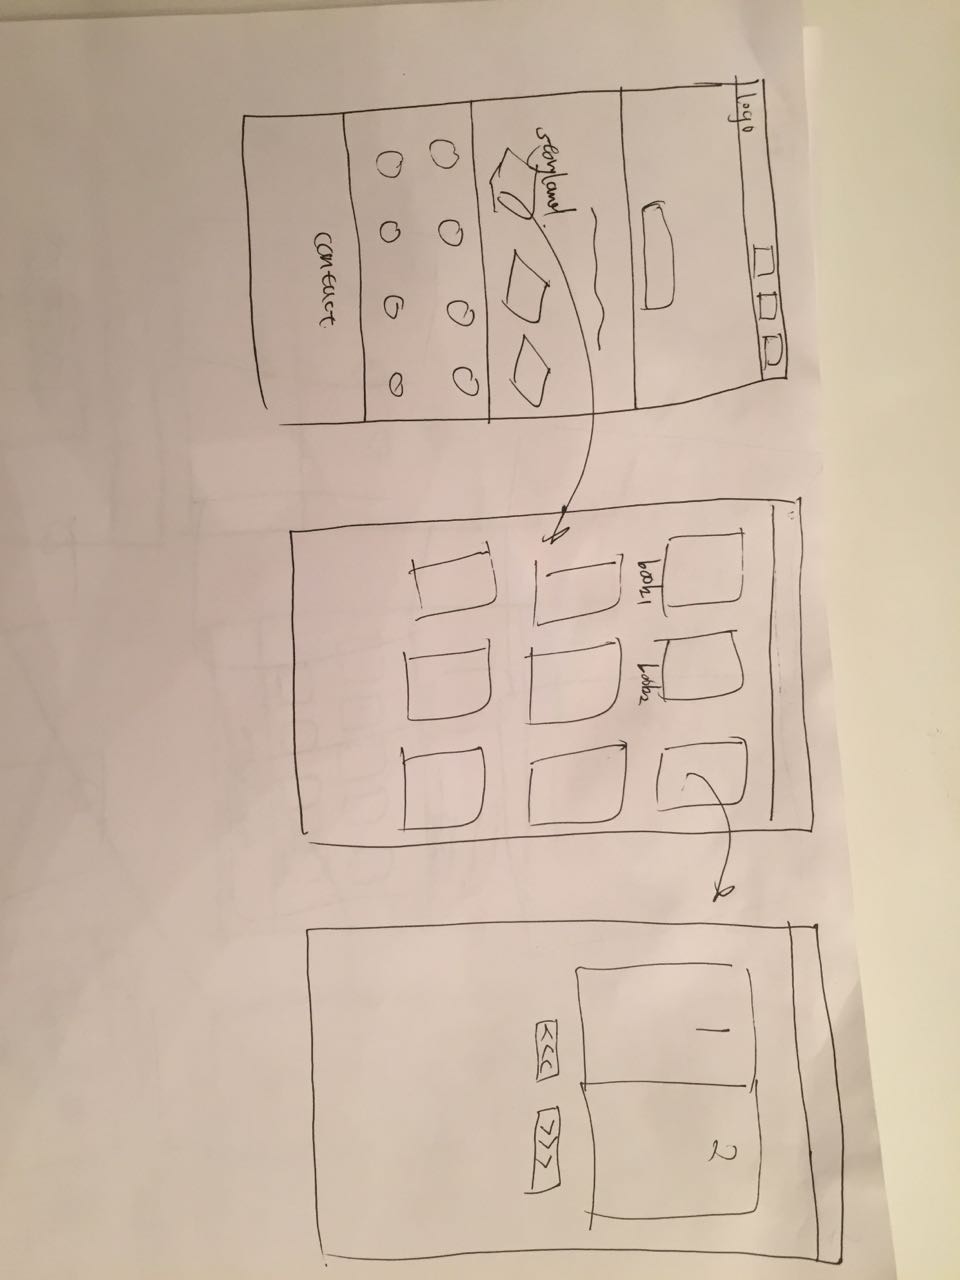 logo
storyland
contact
book1
book2
1
2
<<<
>>>